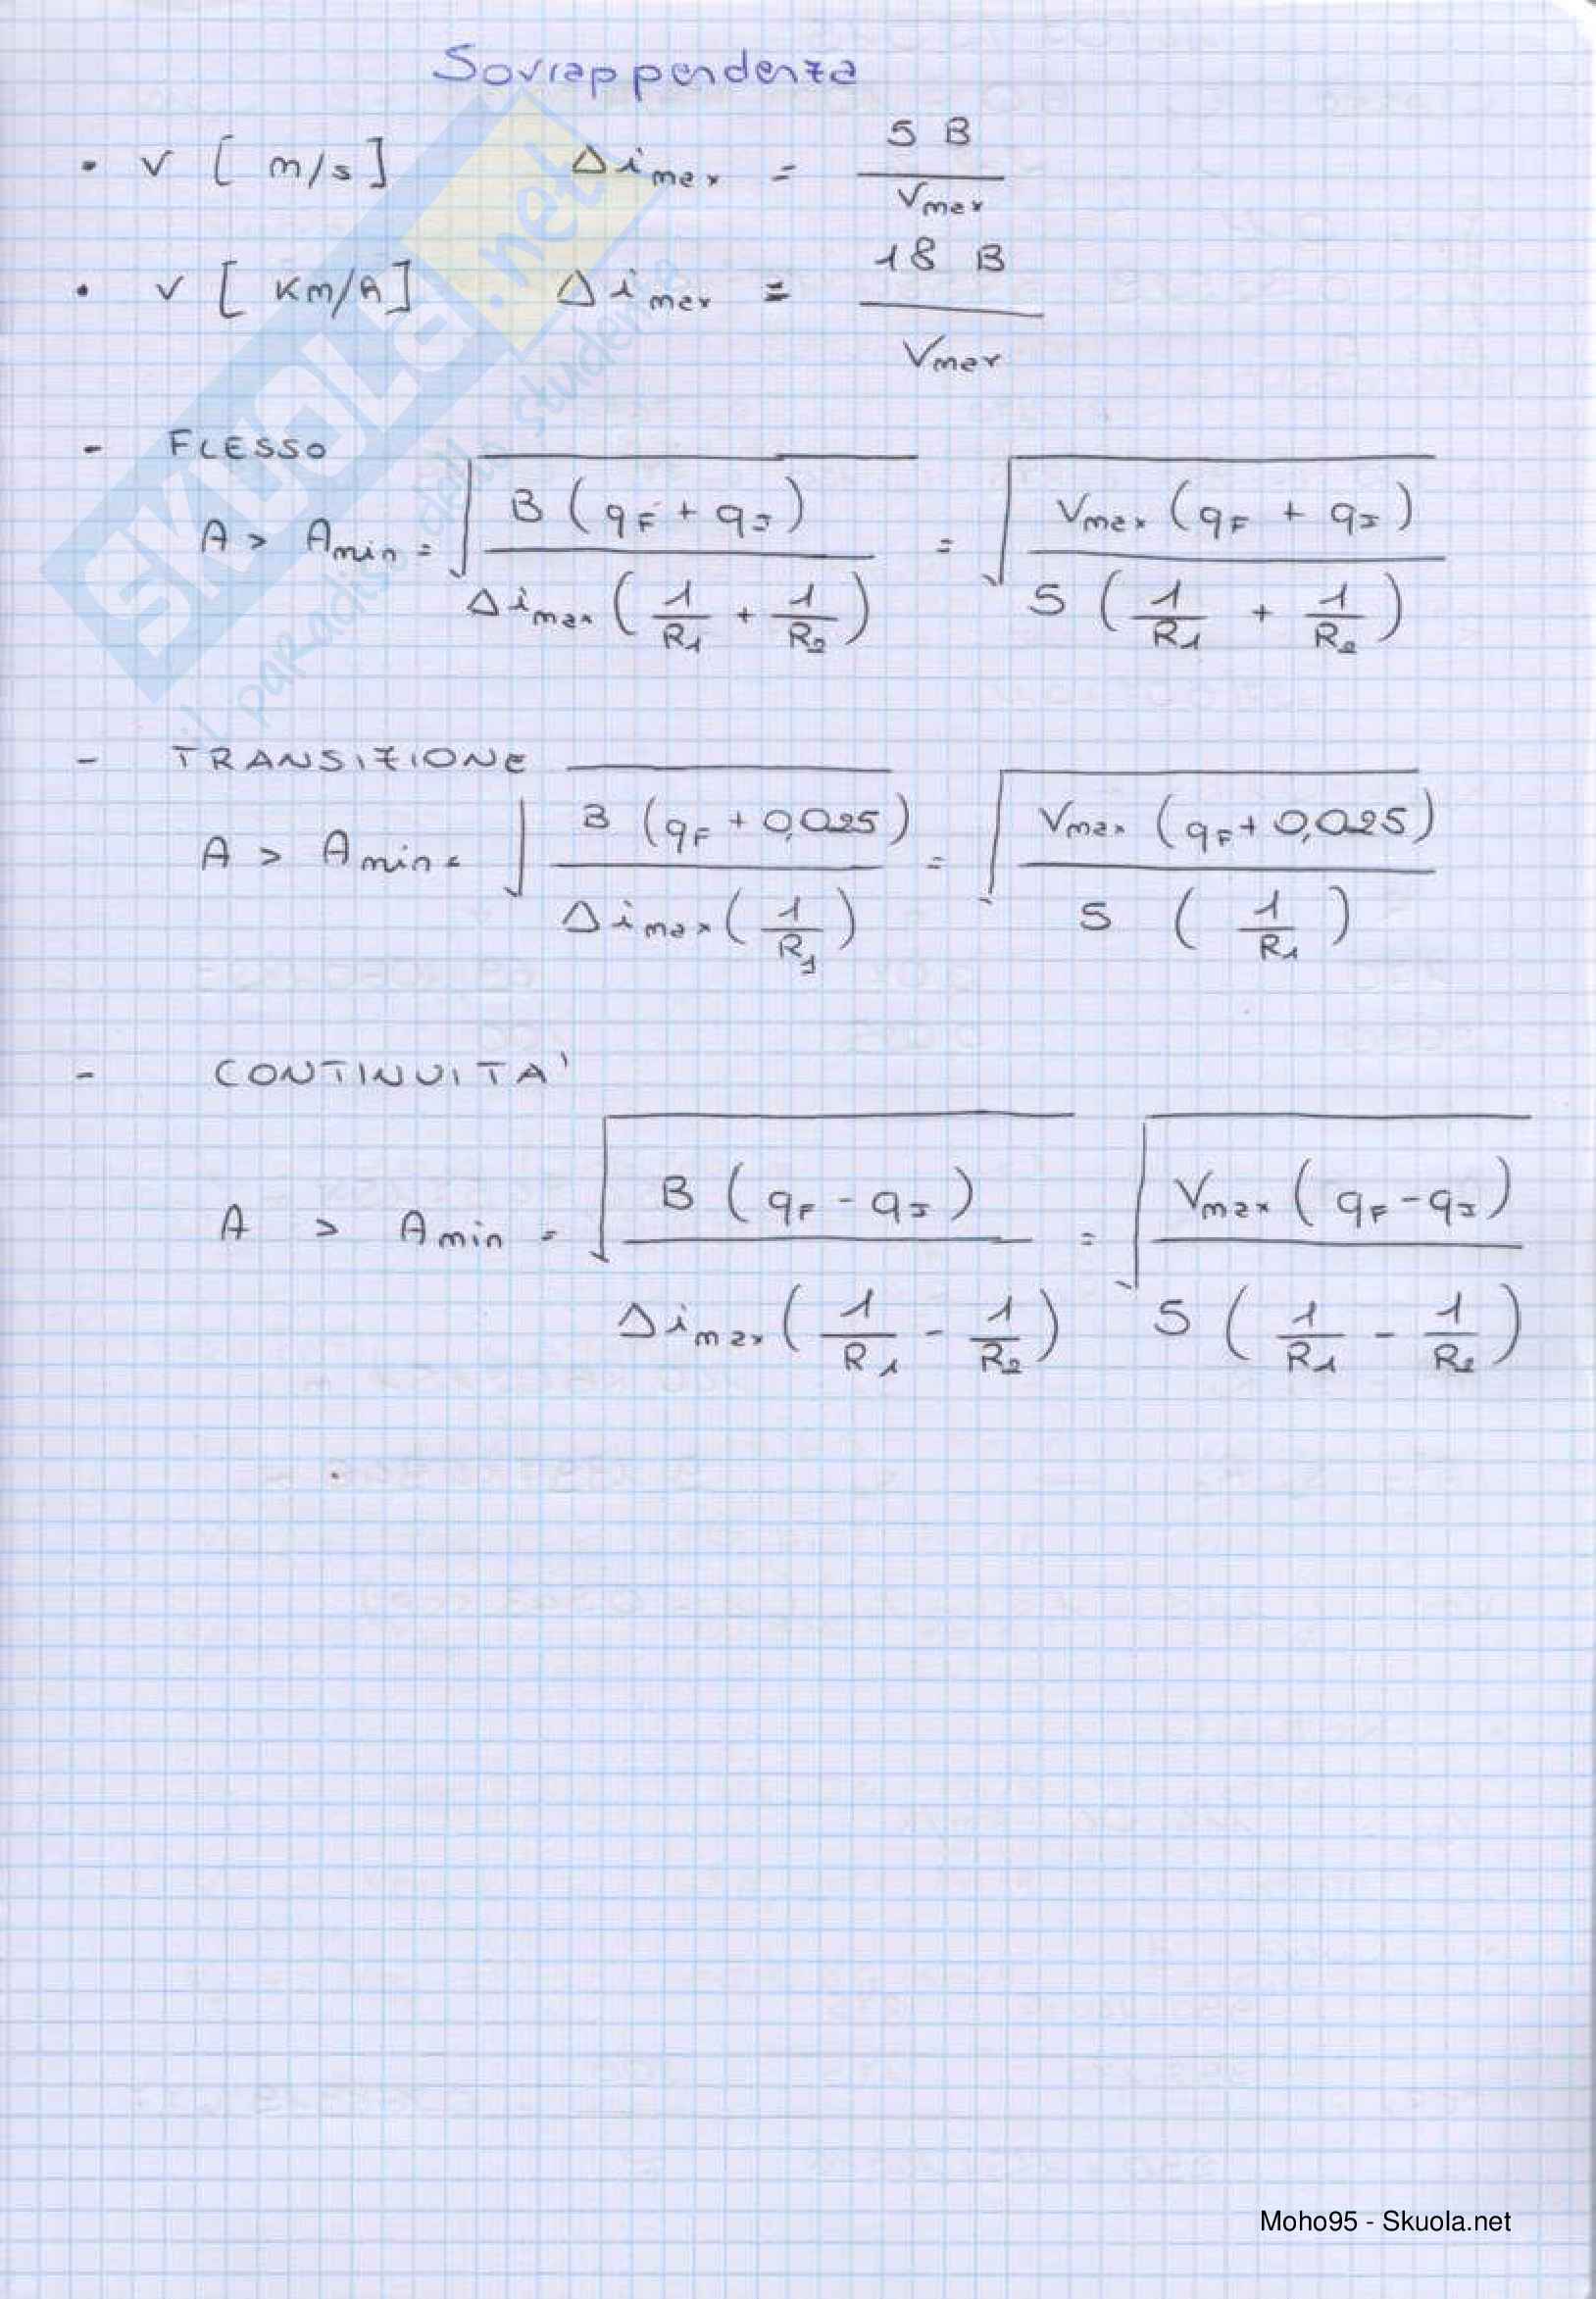 Sovrappendenza
• v [ m/s ] Δi max = 5 B / Vmax
• v [ Km/h ] Δi max = 18 B / Vmax
- FLESSO
A > Amin = √( B ( qF + qI ) / Δi max ( 1/R1 + 1/R2 ) ) = √( Vmax ( qF + qI ) / 5 ( 1/R1 + 1/R2 ) )
- TRANSIZIONE
A > Amin = √( B ( qF + 0,025 ) / Δi max ( 1/R1 ) ) = √( Vmax ( qF + 0,025 ) / 5 ( 1/R1 ) )
- CONTINUITA'
A > Amin = √( B ( qF - qI ) / Δi max ( 1/R1 - 1/R2 ) ) = √( Vmax ( qF - qI ) / 5 ( 1/R1 - 1/R2 ) )
SKUOLA.net
il paradiso dello studente
Moho95 - Skuola.net